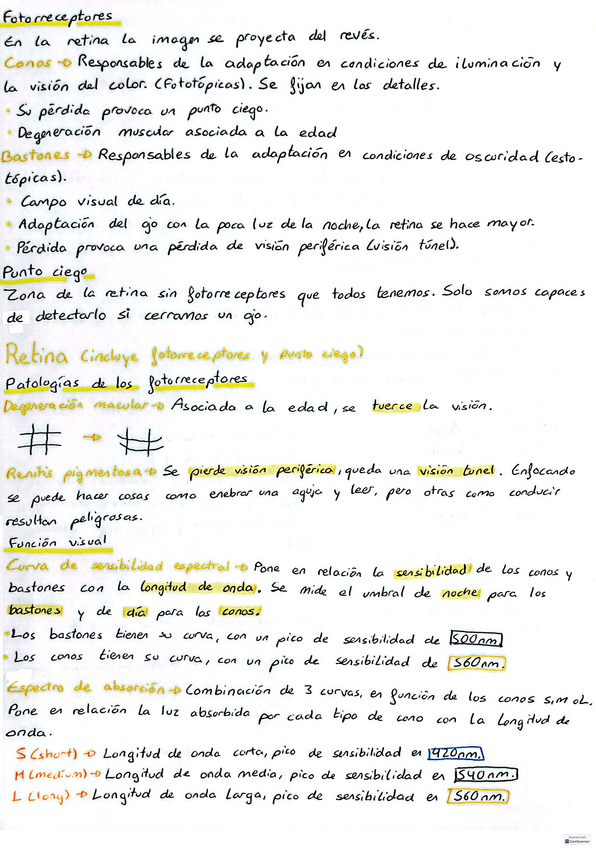 Fotorreceptores
En la retina la imagen se proyecta del revés.
Conos → Responsables de la adaptación en condiciones de iluminación y
la visión del color. (Fototópicas). Se fijan en los detalles.
• Su pérdida provoca un punto ciego.
• Degeneración muscular asociada a la edad
Bastones → Responsables de la adaptación en condiciones de oscuridad (esto-
tópicas).
• Campo visual de día.
• Adaptación del ojo con la poca luz de la noche, la retina se hace mayor.
• Pérdida provoca una pérdida de visión periférica (visión túnel).
Punto ciego
Zona de la retina sin fotorreceptores que todos tenemos. Solo somos capaces
de detectarlo si cerramos un ojo.
Retina (incluye fotorreceptores y punto ciego)
Patologías de los fotorreceptores
Degeneración macular → Asociada a la edad, se tuerce la visión.
Renitis pigmentosa → Se pierde visión periférica, queda una visión tunel. Enfocando
se puede hacer cosas como enebrar una aguja y leer, pero otras como conducir
resultan peligrosas.
Función visual
Curva de sensibilidad espectral → Pone en relación la sensibilidad de los conos y
bastones con la longitud de onda. Se mide el umbral de noche para los
bastones y de día para los conos.
• Los bastones tienen su curva, con un pico de sensibilidad de 500nm.
• Los conos tienen su curva, con un pico de sensibilidad de 560nm.
Espectro de absorción → Combinación de 3 curvas, en función de los conos S, M o L.
Pone en relación la luz absorbida por cada tipo de cono con la longitud de
onda.
S (short) → Longitud de onda corta, pico de sensibilidad en 420nm.
M (medium) → Longitud de onda media, pico de sensibilidad en 540nm.
L (long) → Longitud de onda larga, pico de sensibilidad en 560nm.
CamScanner